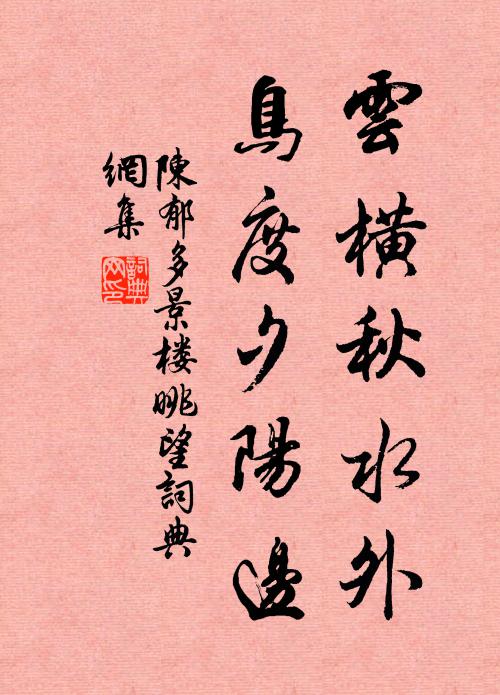 雲橫秋水外
鳥度夕陽邊
陳郁多景楼眺望詞典
網集
詞典
網印